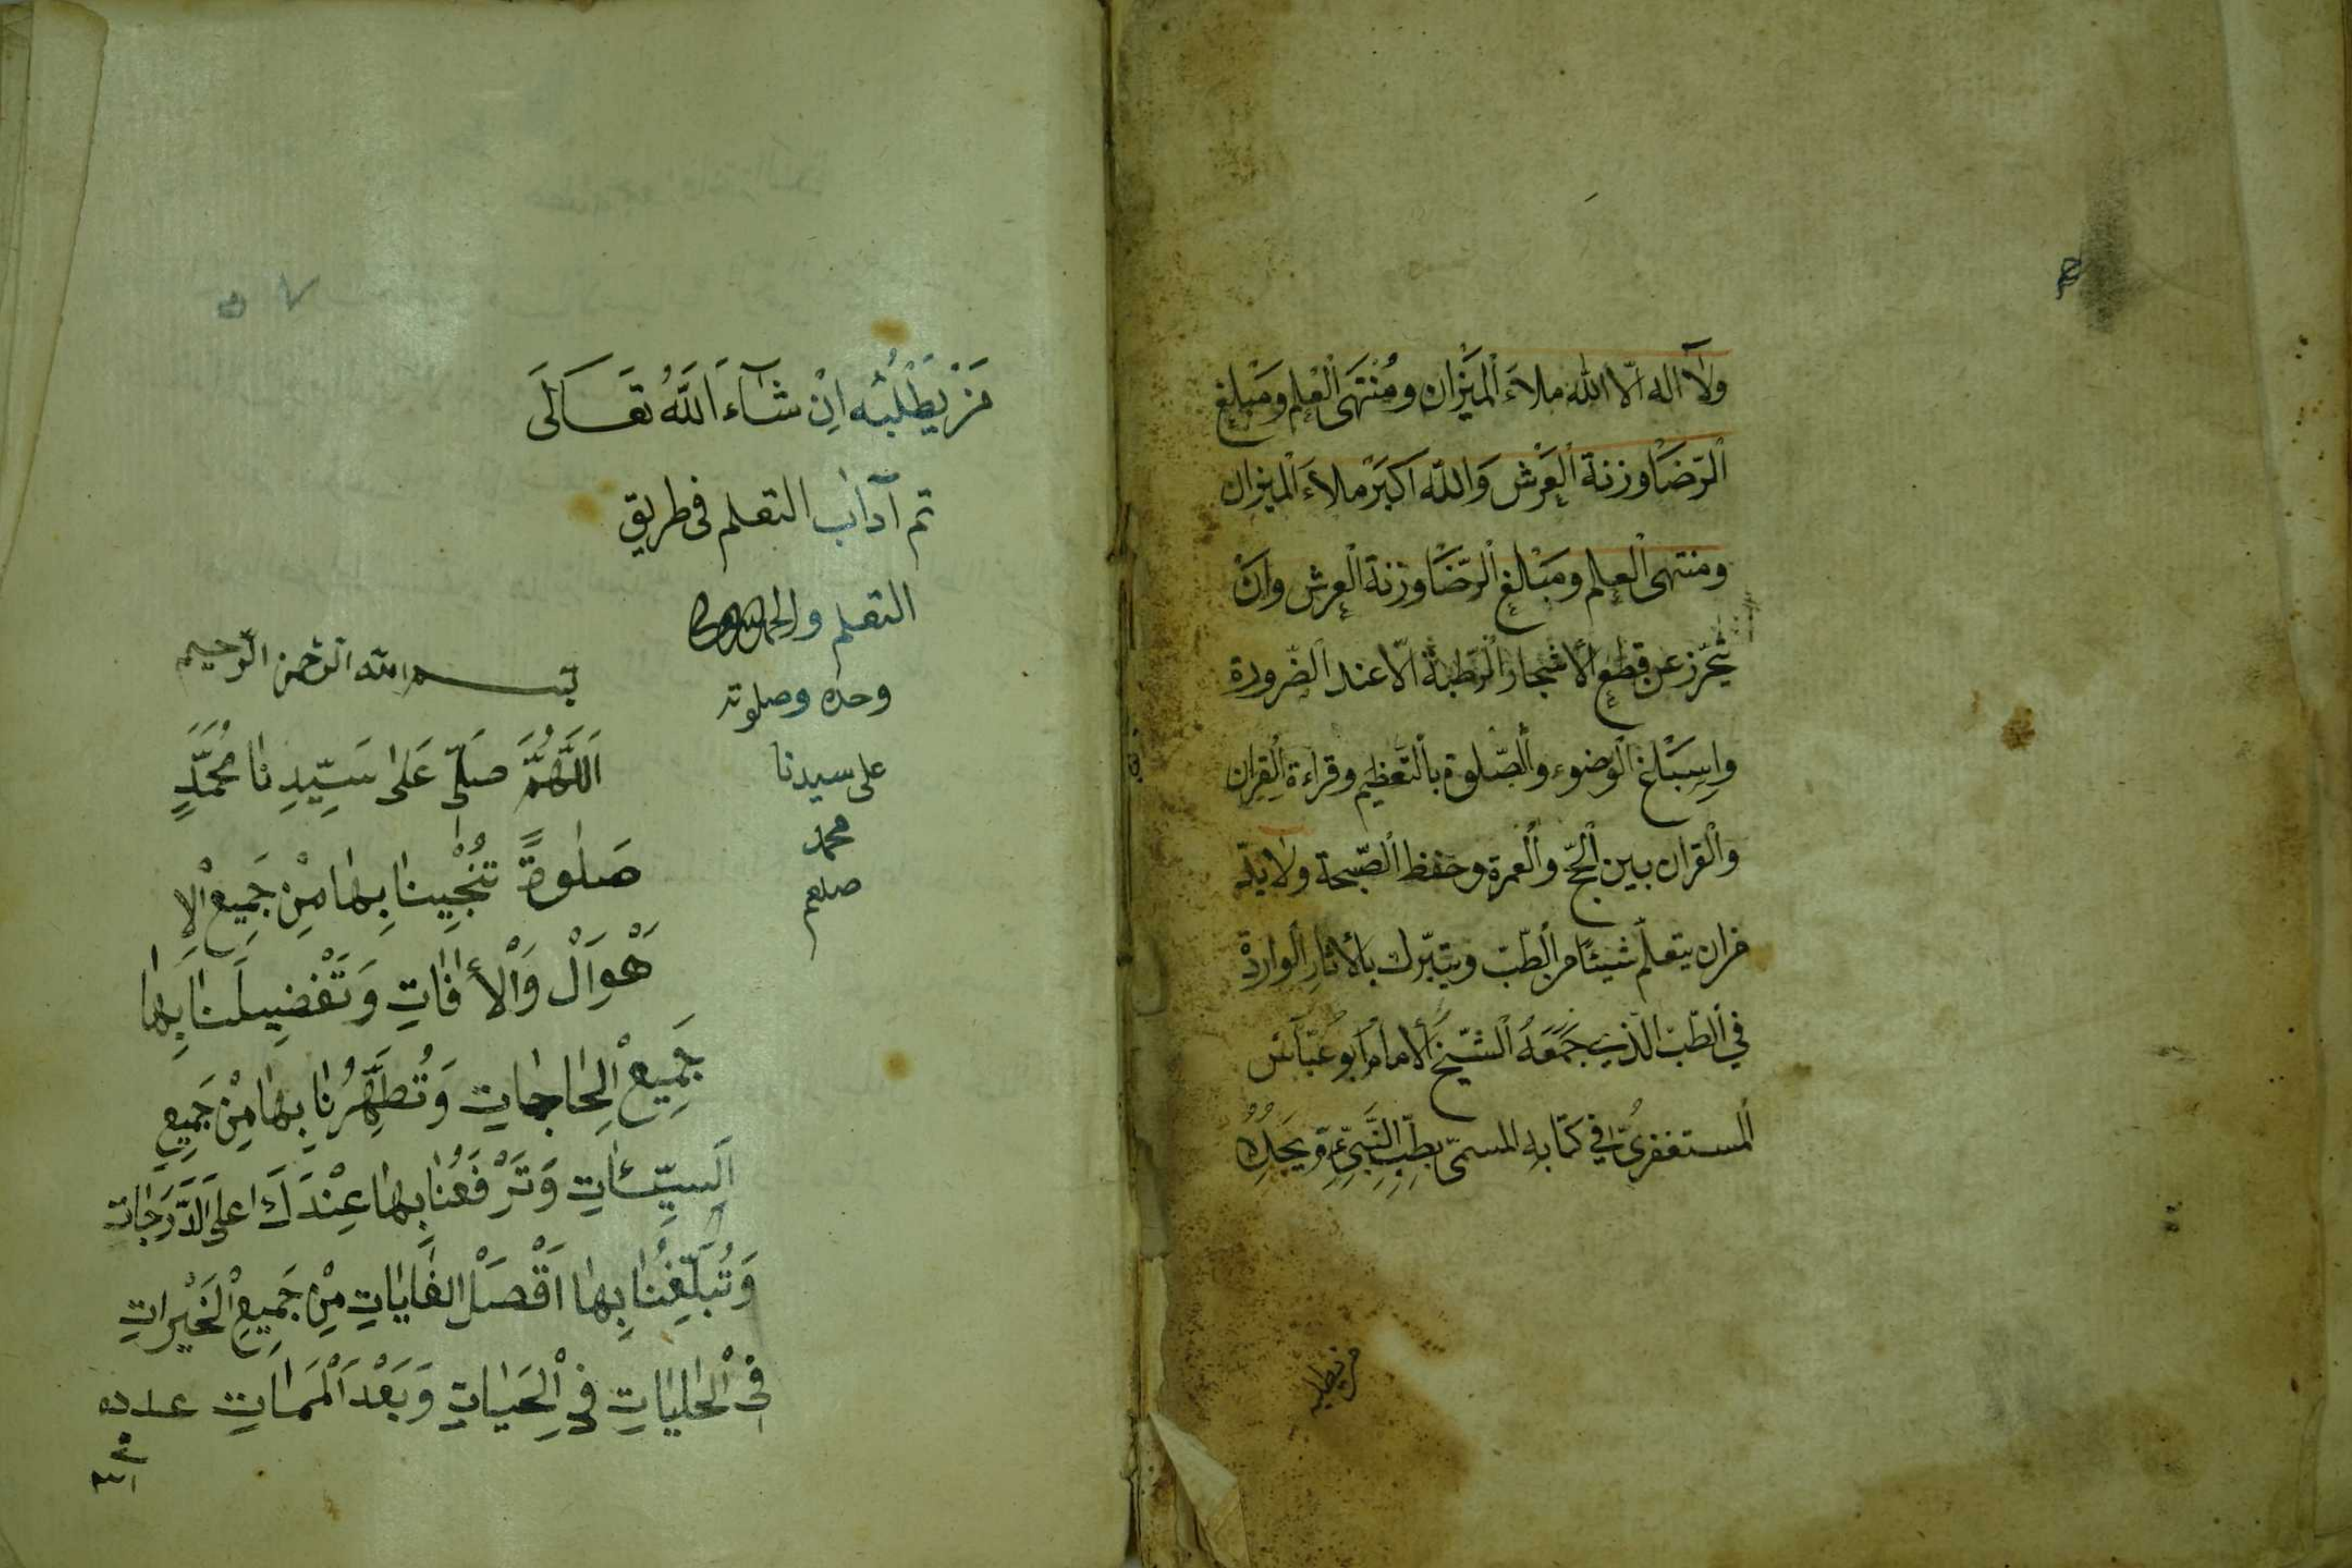 ولا اله الا الله ملاء الميزان ومنتهى العلم ومبلغ
الرضا وزنة العرش والله اكبر ملاء الميزان
ومنتهى العلم ومبلغ الرضا وزنة العرش وان
يتحرز عن قطع الاشجار الرطبة الا عند الضرورة
واسباغ الوضوء والصلوة بالتعظيم وقراءة القران
والقران بين الحج والعمرة وحفظ الصحة ولا بد
من ان يتعلم شيئا من الطب ويتبرك بالاثار الواردة
في الطب الذي جمعه الشيخ الامام ابو عباس
المستغفري في كتابه المسمى بطب النبي ويجده
من يطلبه
مَنْ يَطْلُبُه اِنْ شَآءَ اَللَّهُ تَعَالَى
تم آداب التعلم فى طريق
التعلم والحمد لله
وحده وصلوته
على سيدنا
محمد
صلعم
بسم الله الرحمن الرحيم
اَللَّهُمَّ صَلِّ عَلى سَيِّدِنا مُحَمَّدٍ
صَلوةً تُنْجِينا بِها مِنْ جَمِيعِ الا
هْوَالْ وَالْأفاتِ وَتَقْضِي لَنا بِها
جَمِيعْ الحاجاتِ وَتُطَهِّرُنا بِها مِنْ جَمِيعِ
السَيِّئاتِ وَتَرْفَعُنا بِها عِنْدَكَ اعلَى الدَّرَجات
وَتُبَلِّغُنا بِها اَقْصَلْ الغاياتِ مِنْ جَمِيعِ الْخَيْراتِ
فِى الْحلياتِ فِى الْحَياتِ وَبَعْدَ الْمَماتِ عدده